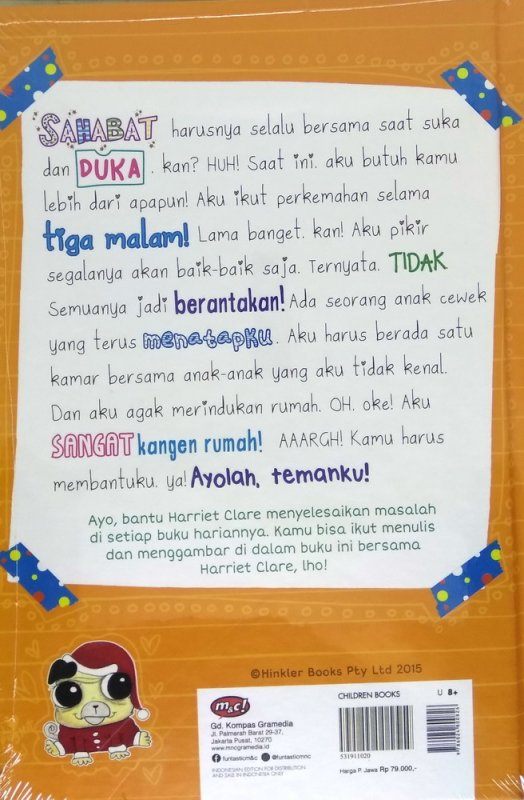 SAHABAT harusnya selalu bersama saat suka
dan DUKA, kan? HUH! Saat ini, aku butuh kamu
lebih dari apapun! Aku ikut perkemahan selama
tiga malam! Lama banget, kan! Aku pikir
segalanya akan baik-baik saja. Ternyata, TIDAK
Semuanya jadi berantakan! Ada seorang anak cewek
yang terus menatapku. Aku harus berada satu
kamar bersama anak-anak yang aku tidak kenal.
Dan aku agak merindukan rumah. OH, oke! Aku
SANGAT kangen rumah! AAARGH! Kamu harus
membantuku, ya! Ayolah, temanku!
Ayo, bantu Harriet Clare menyelesaikan masalah
di setiap buku hariannya. Kamu bisa ikut menulis
dan menggambar di dalam buku ini bersama
Harriet Clare, lho!
©Hinkler Books Pty Ltd 2015
m&c!
Gd. Kompas Gramedia
Jl. Palmerah Barat 29-37,
Jakarta Pusat, 10270
www.mncgramedia.id
funtasticm&c funtasticmnc
INDONESIAN EDITION FOR DISTRIBUTION
AND SALE IN INDONESIA ONLY
CHILDREN BOOKS
U 8+
531911020
Harga P. Jawa Rp 79.000,-